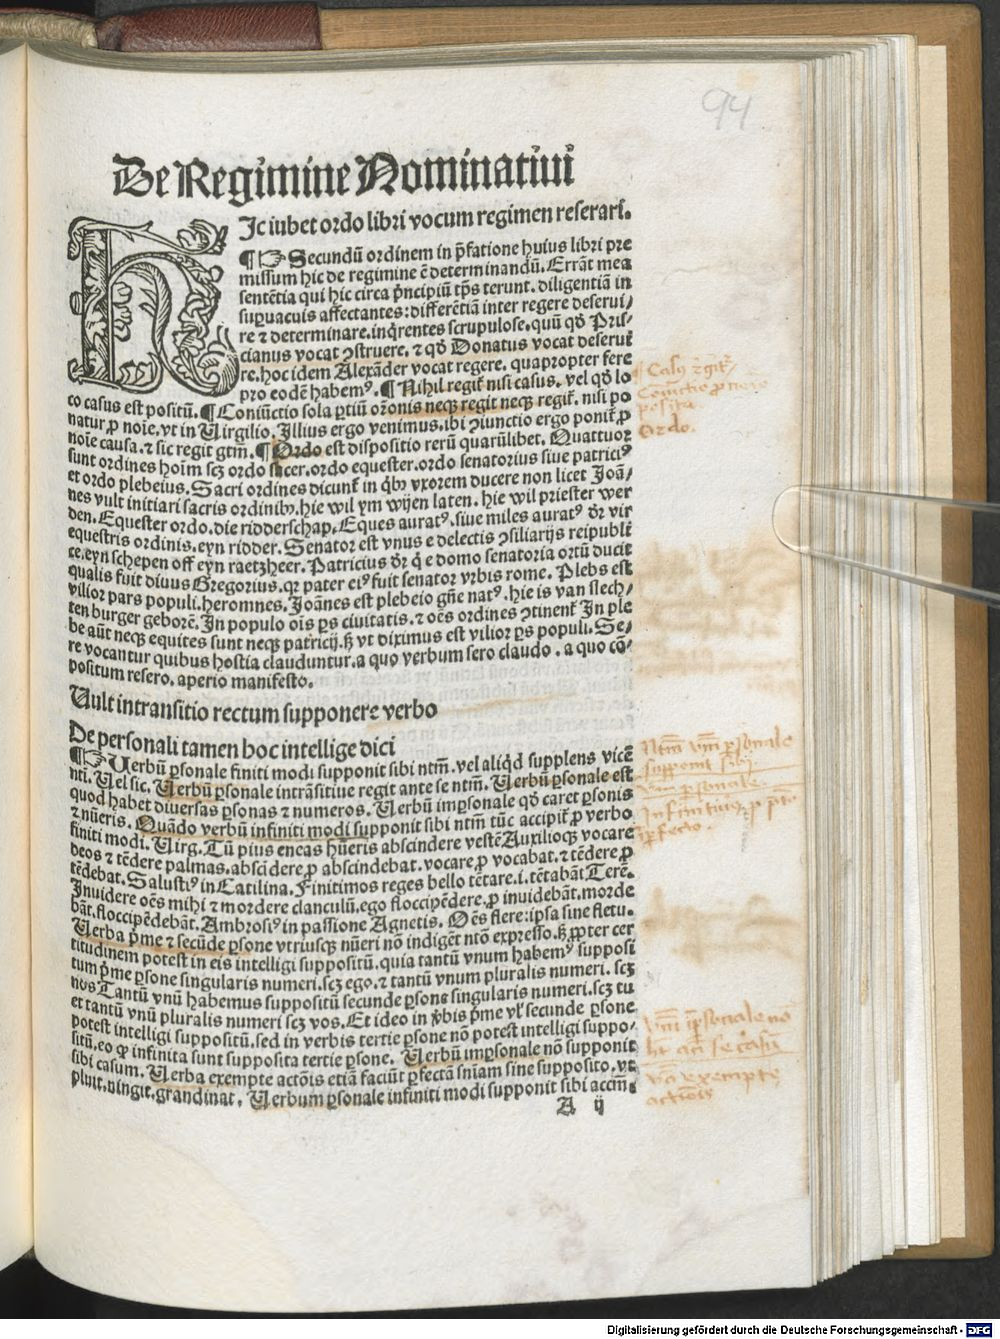 94
De Regimine Nominatiui
HIc iubet ordo libri vocum regimen reserari.
¶ ☞ Secundū ordinem in p̄fatione huius libri pre
missum hic de regimine ē determinandū. Errāt mea
sentētia qui hic circa p̄ncipiū tp̄s terunt. diligentiā in
suꝑuacuis affectantes: differētiā inter regere deserui/
re ⁊ determinare. inq̄rentes scrupulose. quū qd̄ Pris/
cianus vocat ꝯstruere. ⁊ qd̄ Donatus vocat deserui
re. hoc idem Alexāder vocat regere. quapropter fere
pro eodē habemꝰ. ¶ Nihil regit̄ nisi casus. vel qd̄ lo
co casus est positū. ¶ Coniūctio sola ꝑtiū or̄onis neqꝫ regit neqꝫ regit̄. nisi po
natur ꝓ noīe. vt in Uirgilio. Illius ergo venimus. ibi ꝯiunctio ergo ponit̄ ꝓ
noīe causa. ⁊ sic regit gtm̄. ¶ Ordo est dispositio rerū quarūlibet. Quattuor
sunt ordines hoīm scꝫ ordo sacer. ordo equester. ordo senatorius siue patriciꝰ
et ordo plebeius. Sacri ordines dicunt̄ in qbꝫ vxorem ducere non licet Joā/
nes vult initiari sacris ordinibꝫ. hie wil ym wijen laten. hie wil priester wer
den. Equester ordo. die ridderschap. Eques auratꝰ. siue miles auratꝰ dr̄ vir
equestris ordinis. eyn ridder. Senator est vnus e delectis ꝯsiliarijs reipubli
ce. eyn schepen off eyn raetzheer. Patricius dr̄ q̄ e domo senatoria ortū ducit
qualis fuit diuus Gregorius. qr pater eiꝰ fuit senator vrbis rome. Plebs est
vilior pars populi. heromnes. Joānes est plebeio gn̄e natꝰ. hie is van slech/
ten burger geborē. In populo oīs ꝑs ciuitatis. ⁊ oēs ordines ꝯtinent̄ In ple
be aūt neqꝫ equites sunt neqꝫ patricij. sꝫ vt diximus est vilior ꝑs populi. Se/
re vocantur quibus hostia clauduntur. a quo verbum sero claudo. a quo cō/
positum resero. aperio manifesto.
Uult intransitio rectum supponere verbo
De personali tamen hoc intellige dici
¶ ☞ Uerbū ꝑsonale finiti modi supponit sibi ntm̄. vel aliqd supplens vicē
nti. Uel sic. Uerbū ꝑsonale intrāsitiue regit ante se ntm̄. Uerbū ꝑsonale est
quod habet diuersas ꝑsonas ⁊ numeros. Uerbū imꝑsonale qd̄ caret ꝑsonis
⁊ nūeris. Quādo verbū infiniti modi supponit sibi ntm̄ tūc accipit̄ ꝓ verbo
finiti modi. Uirg. Tū pius eneas hūeris abscindere vestē Auxilioqꝫ vocare
deos ⁊ tēdere palmas. abscidere ꝓ abscindebat. vocare ꝓ vocabat. ⁊ tēdere ꝓ
tēdebat. Salustiꝰ in Catilina. Finitimos reges bello tētare. i. tētabāt Terē.
Inuidere oēs mihi ⁊ mordere clanculū. ego floccipēdere. ꝓ inuidebāt. morde
bāt. floccipēdebāt. Ambrosiꝰ in passione Agnetis. Oēs flere: ipsa sine fletu.
Uerba p̄me ⁊ secūde ꝑsone vtriusqꝫ nūeri nō indigēt ntō expresso. sꝫ ꝓpter cer
titudinem potest in eis intelligi suppositū. quia tantū vnum habemꝰ supposi
tum p̄me ꝑsone singularis numeri. scꝫ ego. ⁊ tantū vnum pluralis numeri. scꝫ
nos Tantū vnū habemus suppositū secunde ꝑsone singularis numeri. scꝫ tu
et tantū vnū pluralis numeri scꝫ vos. Et ideo in v̄bis p̄me vl̄ secunde ꝑsone
potest intelligi suppositū. sed in verbis tertie ꝑsone nō potest intelligi suppo/
sitū. eo ꝙ infinita sunt supposita tertie ꝑsone. Uerbū imꝑsonale nō supponit
sibi casum. Uerba exempte actōis etiā faciūt ꝑfectā sn̄iam sine supposito. vt
pluit. ningit. grandinat. Uerbum ꝑsonale infiniti modi supponit sibi accm̄
A ij
posita.
Ordo.
Ntm̄ vm̄ ꝑsonale
supponit sibi
vm̄ ꝑsonale.
Infinitiuꝰ ꝓ p̄to
īꝑfecto.
vm̄ īꝑsonale nō
vā exempte
actiois
Digitalisierung gefördert durch die Deutsche Forschungsgemeinschaft - DFG